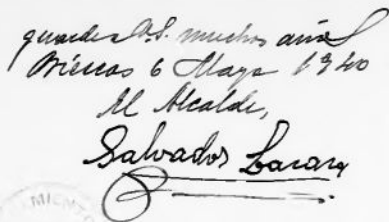 guarde a V.S. muchos años
Biescas 6 Mayo 1940
El Alcalde,
Salvador
MIENTO